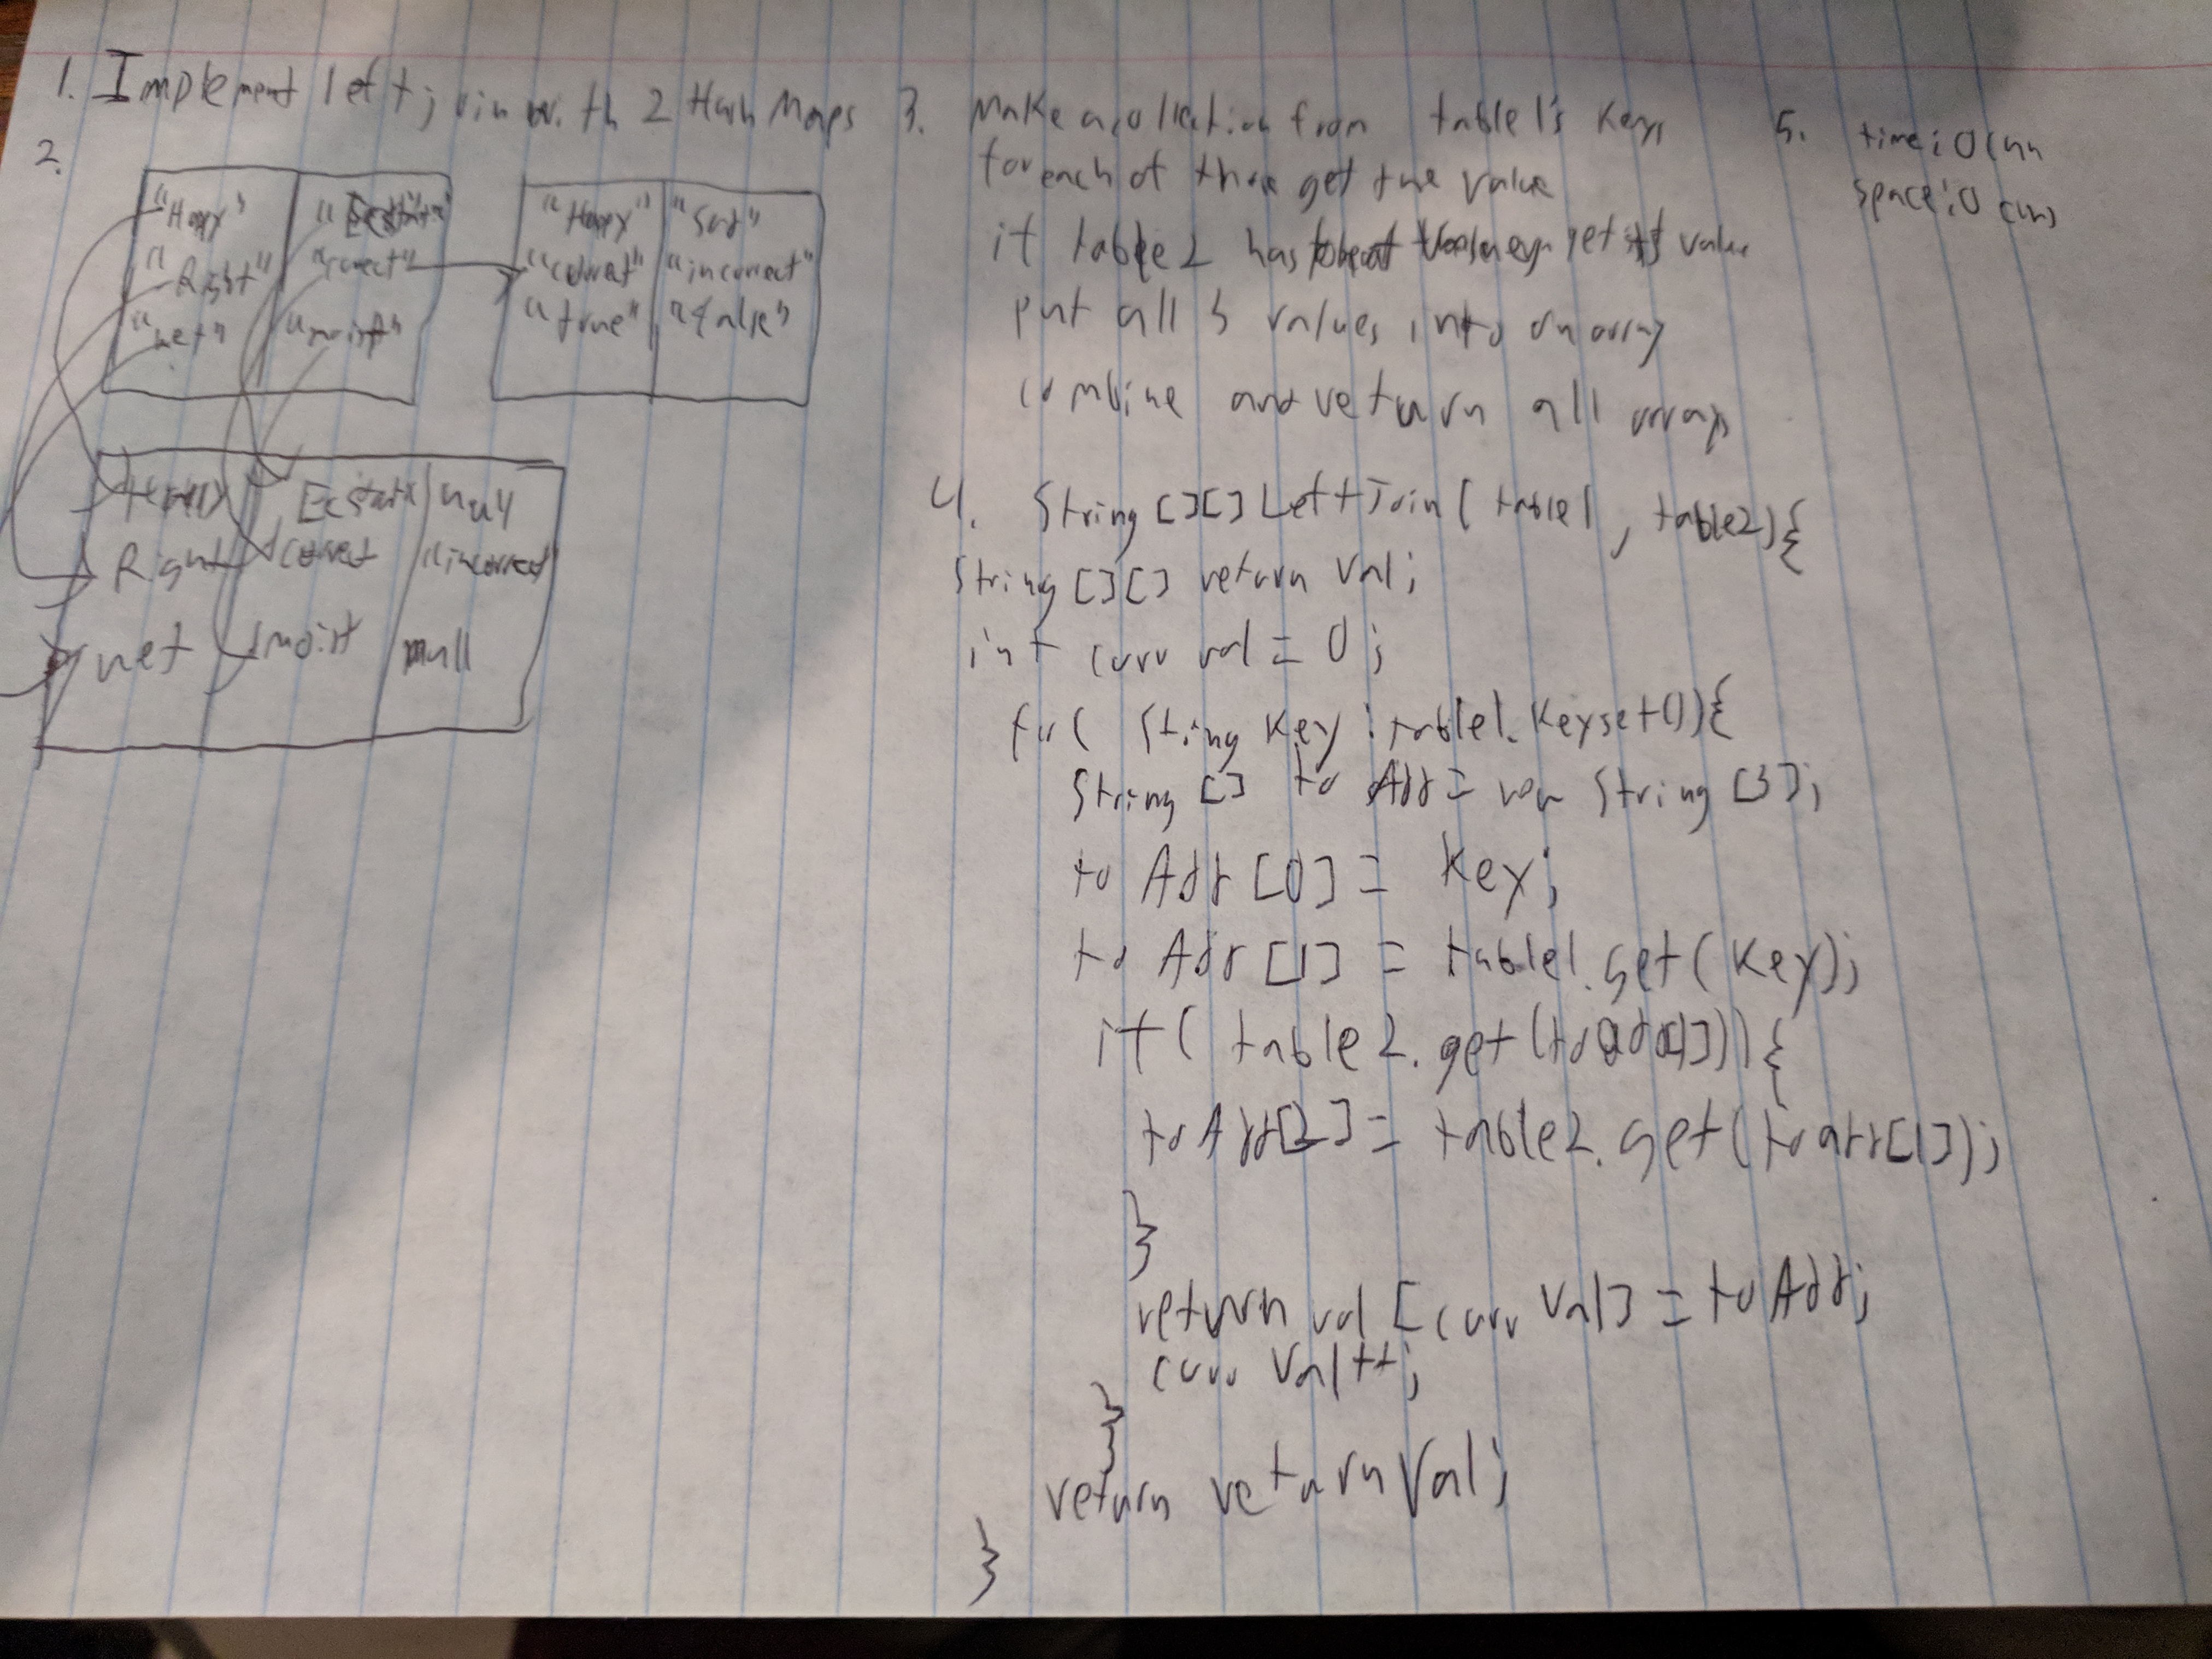 1. Implement left join with 2 Hash Maps
2.
"Happy" "Ecstatic"
"Right" "correct"
"wet" "moist"
"Happy" "Sad"
"correct" "incorrect"
"true" "false"
Happy Ecstatic null
Right correct "incorrect"
wet moist null
3. Make a collection from table1's keys
for each of those get the value
if table2 has get its value
put all 3 values into an array
combine and return all arrays
4. String [][] LeftJoin ( table1 , table2) {
String [][] return Val;
int curr val = 0;
for ( String Key : table1. Keyset()){
String [] to Add = new String [3];
to Add [0] = Key;
to Add [1] = table1.get( Key);
if ( table2.get(toAdd[1])) {
to Add[2] = table2.get(to add[1]);
}
return val [curr Val] = to Add;
curr Val++;
}
return returnVal;
}
5. time: O(n)
space: O(n)